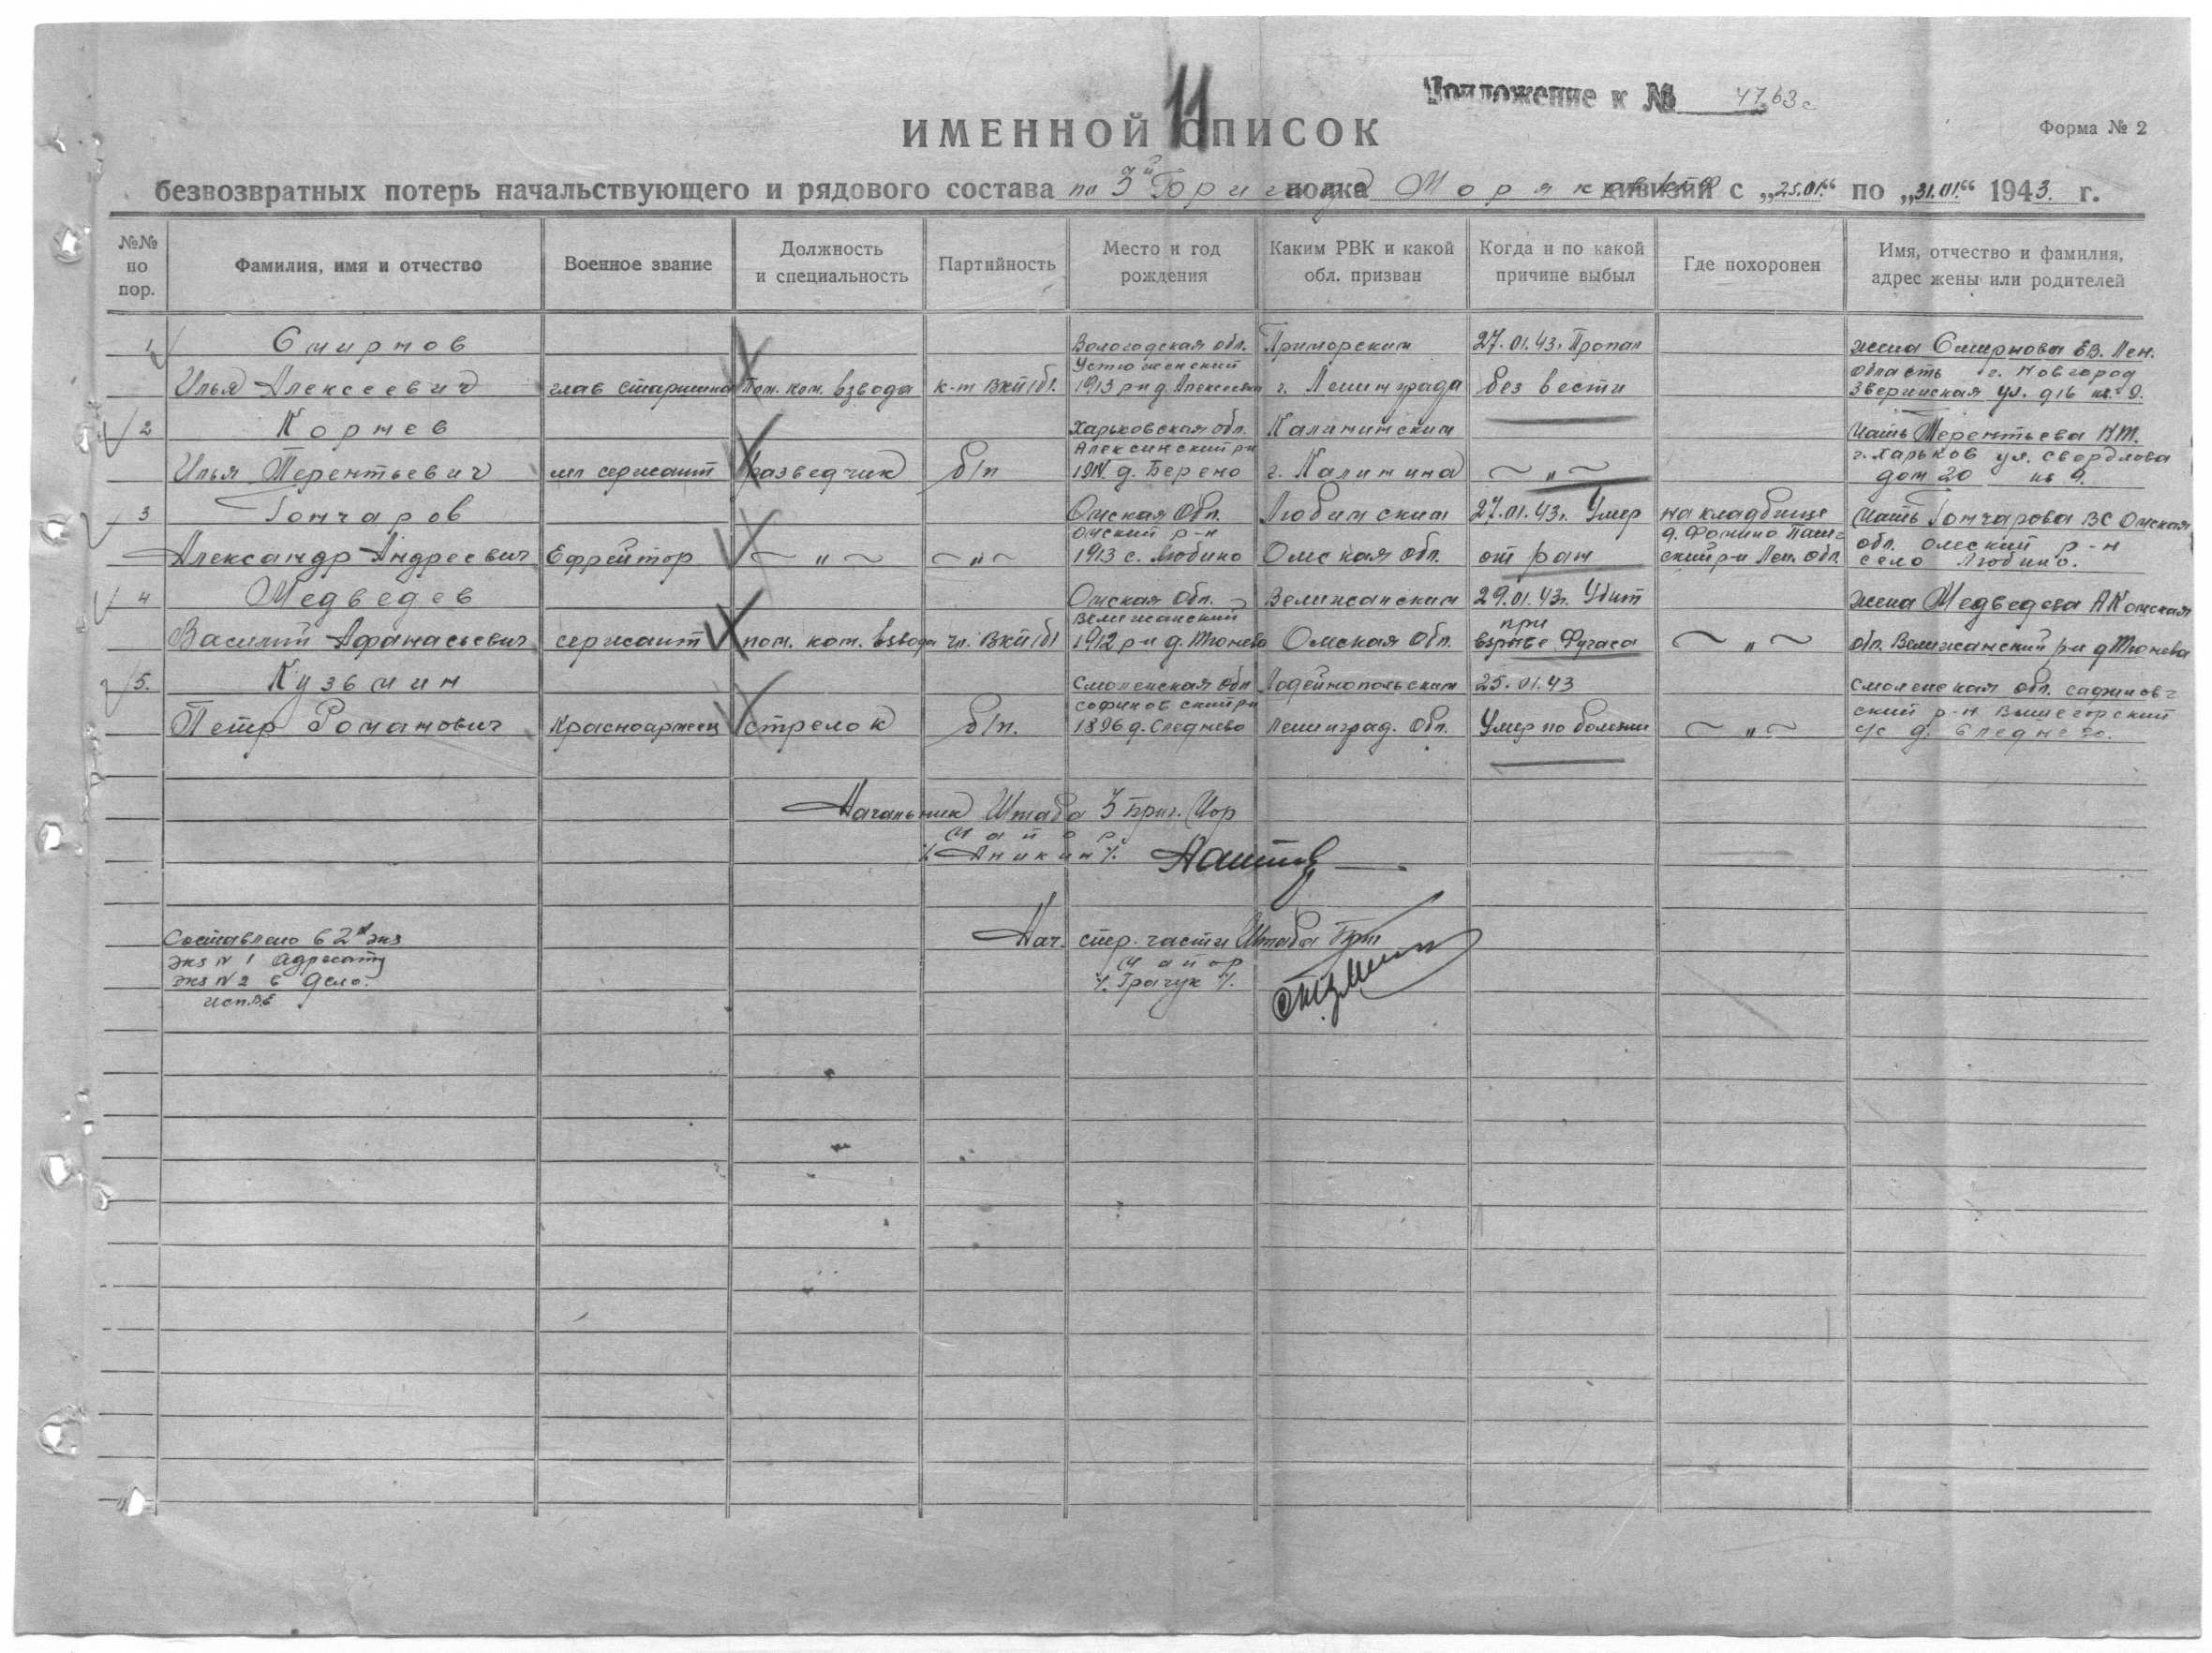 11
Приложение к № 4763с
ИМЕННОЙ СПИСОК
Форма № 2
безвозвратных потерь начальствующего и рядового состава по 3й Бригаде полка Моряков дивизии с „25.01.“ по „31.01.“ 1943. г.
№№ по пор.
Фамилия, имя и отчество
Военное звание
Должность и специальность
Партийность
Место и год рождения
Каким РВК и какой обл. призван
Когда и по какой причине выбыл
Где похоронен
Имя, отчество и фамилия, адрес жены или родителей
1 Смирнов Вологодская обл. Приморским 27.01.43г. Пропал жена Смирнова Е.В. Лен.
Устюженский область г. Новгород
Илья Алексеевич глав старшина Пом. ком. взвода к-т ВКП/б/. 1913 р-н д. г. Ленинграда без вести Зверинская ул. д16 кв. 9.
2 Корнев Харьковская обл. Калининским Мать Терентьева
Алексинский р-н г. Харьков ул. Свердлова
Илья Терентьевич мл сержант разведчик б/п д. Берено г. Калинина ~ " ~ дом 20 кв 9.
3 Гончаров Омская Обл. Любинским 27.01.43г. Умер на кладбище Мать Гончарова ВС Омская
Омский р-н д. Фомино Паш- обл. Омский р-н
Александр Андреевич Ефрейтор ~ " ~ ~ " ~ 1913 с. Любино Омская обл. от ран ский р-н Лен. обл. село Любино.
4 Медведев Омская Обл. Велижанским 29.01.43г. Убит жена Медведева АК Омская
Велижанский при
Василий Афанасьевич сержант пом. ком. взвода чл. ВКП/б/ 1912 р-н д. Тюнева Омская Обл. взрыве Фугаса ~ " ~ обл. Велижанский р-н д Тюнева
5. Кузьмин Смоленская обл Лодейнопольским 25.01.43 Смоленская обл.
ский р-н Вышегорский
Петр Романович Красноармеец стрелок б/п. 1896 д. Следнево Ленинград. Обл. Умер по болезни ~ " ~ с/с д. Следнево.
Начальник Штаба 3 Бриг. Мор
майор
/. Аникин /.
Составлено в 2х экз
экз № 1 Адресату
экз № 2 в дело.
Исп.
Нач. стр. части Штаба Бриг
майор
/. Грачук /.